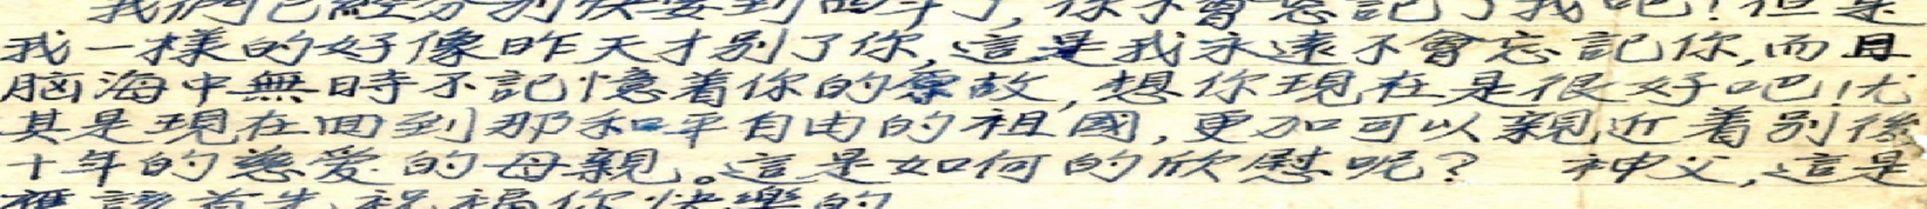 我們已經分別快要到四年了，你不會忘記了我吧！但是
我一樣的好像昨天才別了你，這是我永遠不會忘記你，而且
脑海中無時不記憶着你的原故，想你現在是很好吧！尤
其是現在回到那和平自由的祖國，更加可以親近着別後
十年的慈愛的母親。這是如何的欣慰呢？ 神父，這是
應該首先祝福你快樂的